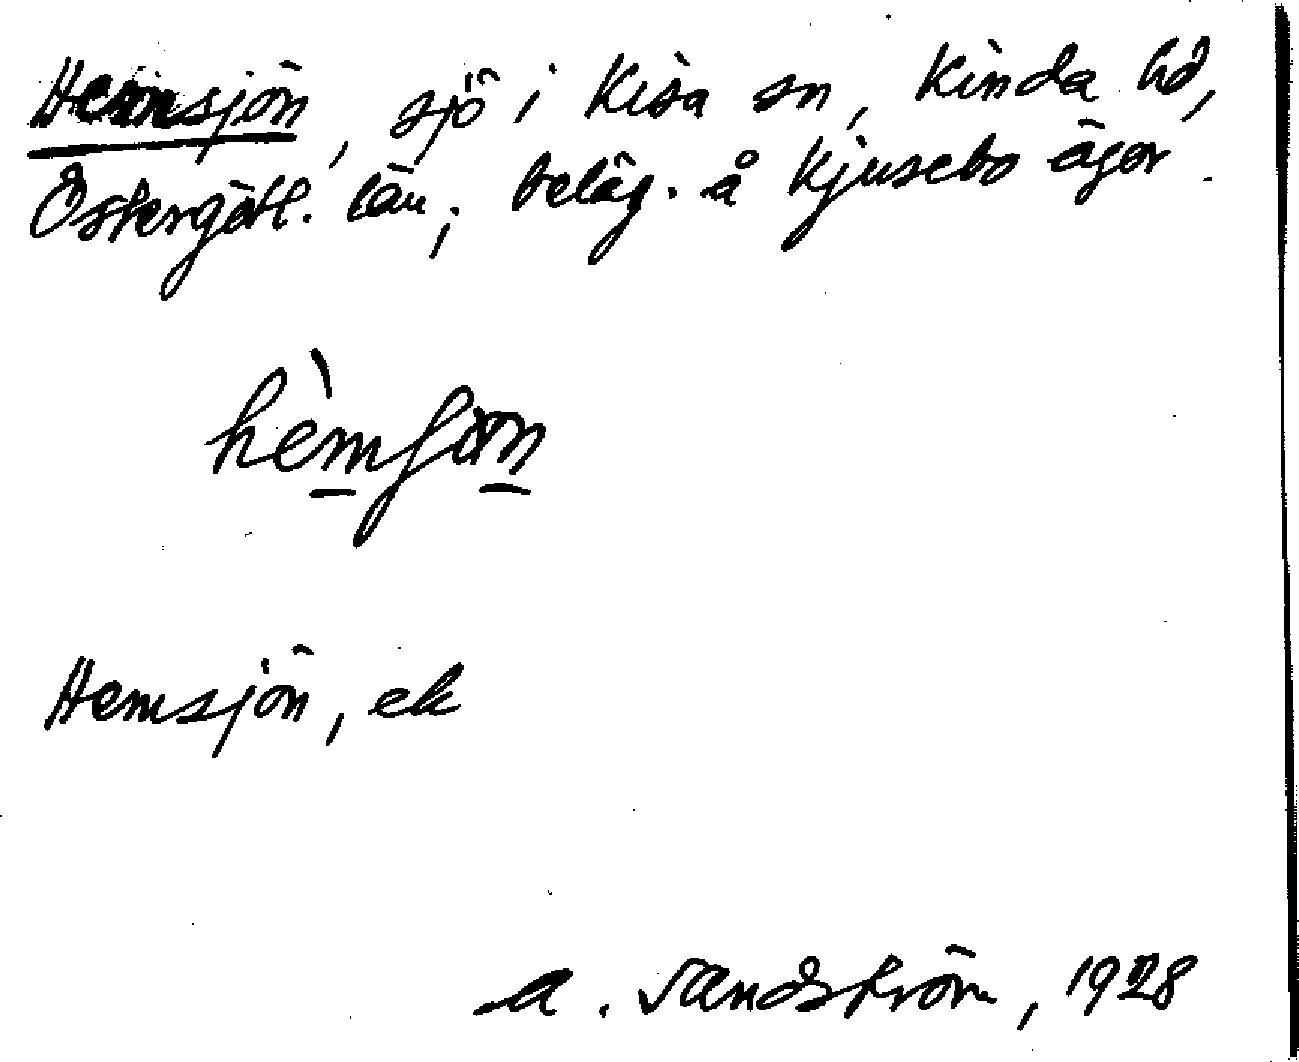 Hemsjön, sjö i Kisa sn, Kinda hd,
Östergötl. län; beläg. å Kjusebo ägor.
hèmʃɷn
Hemsjön, ek
A. Sandström, 1928